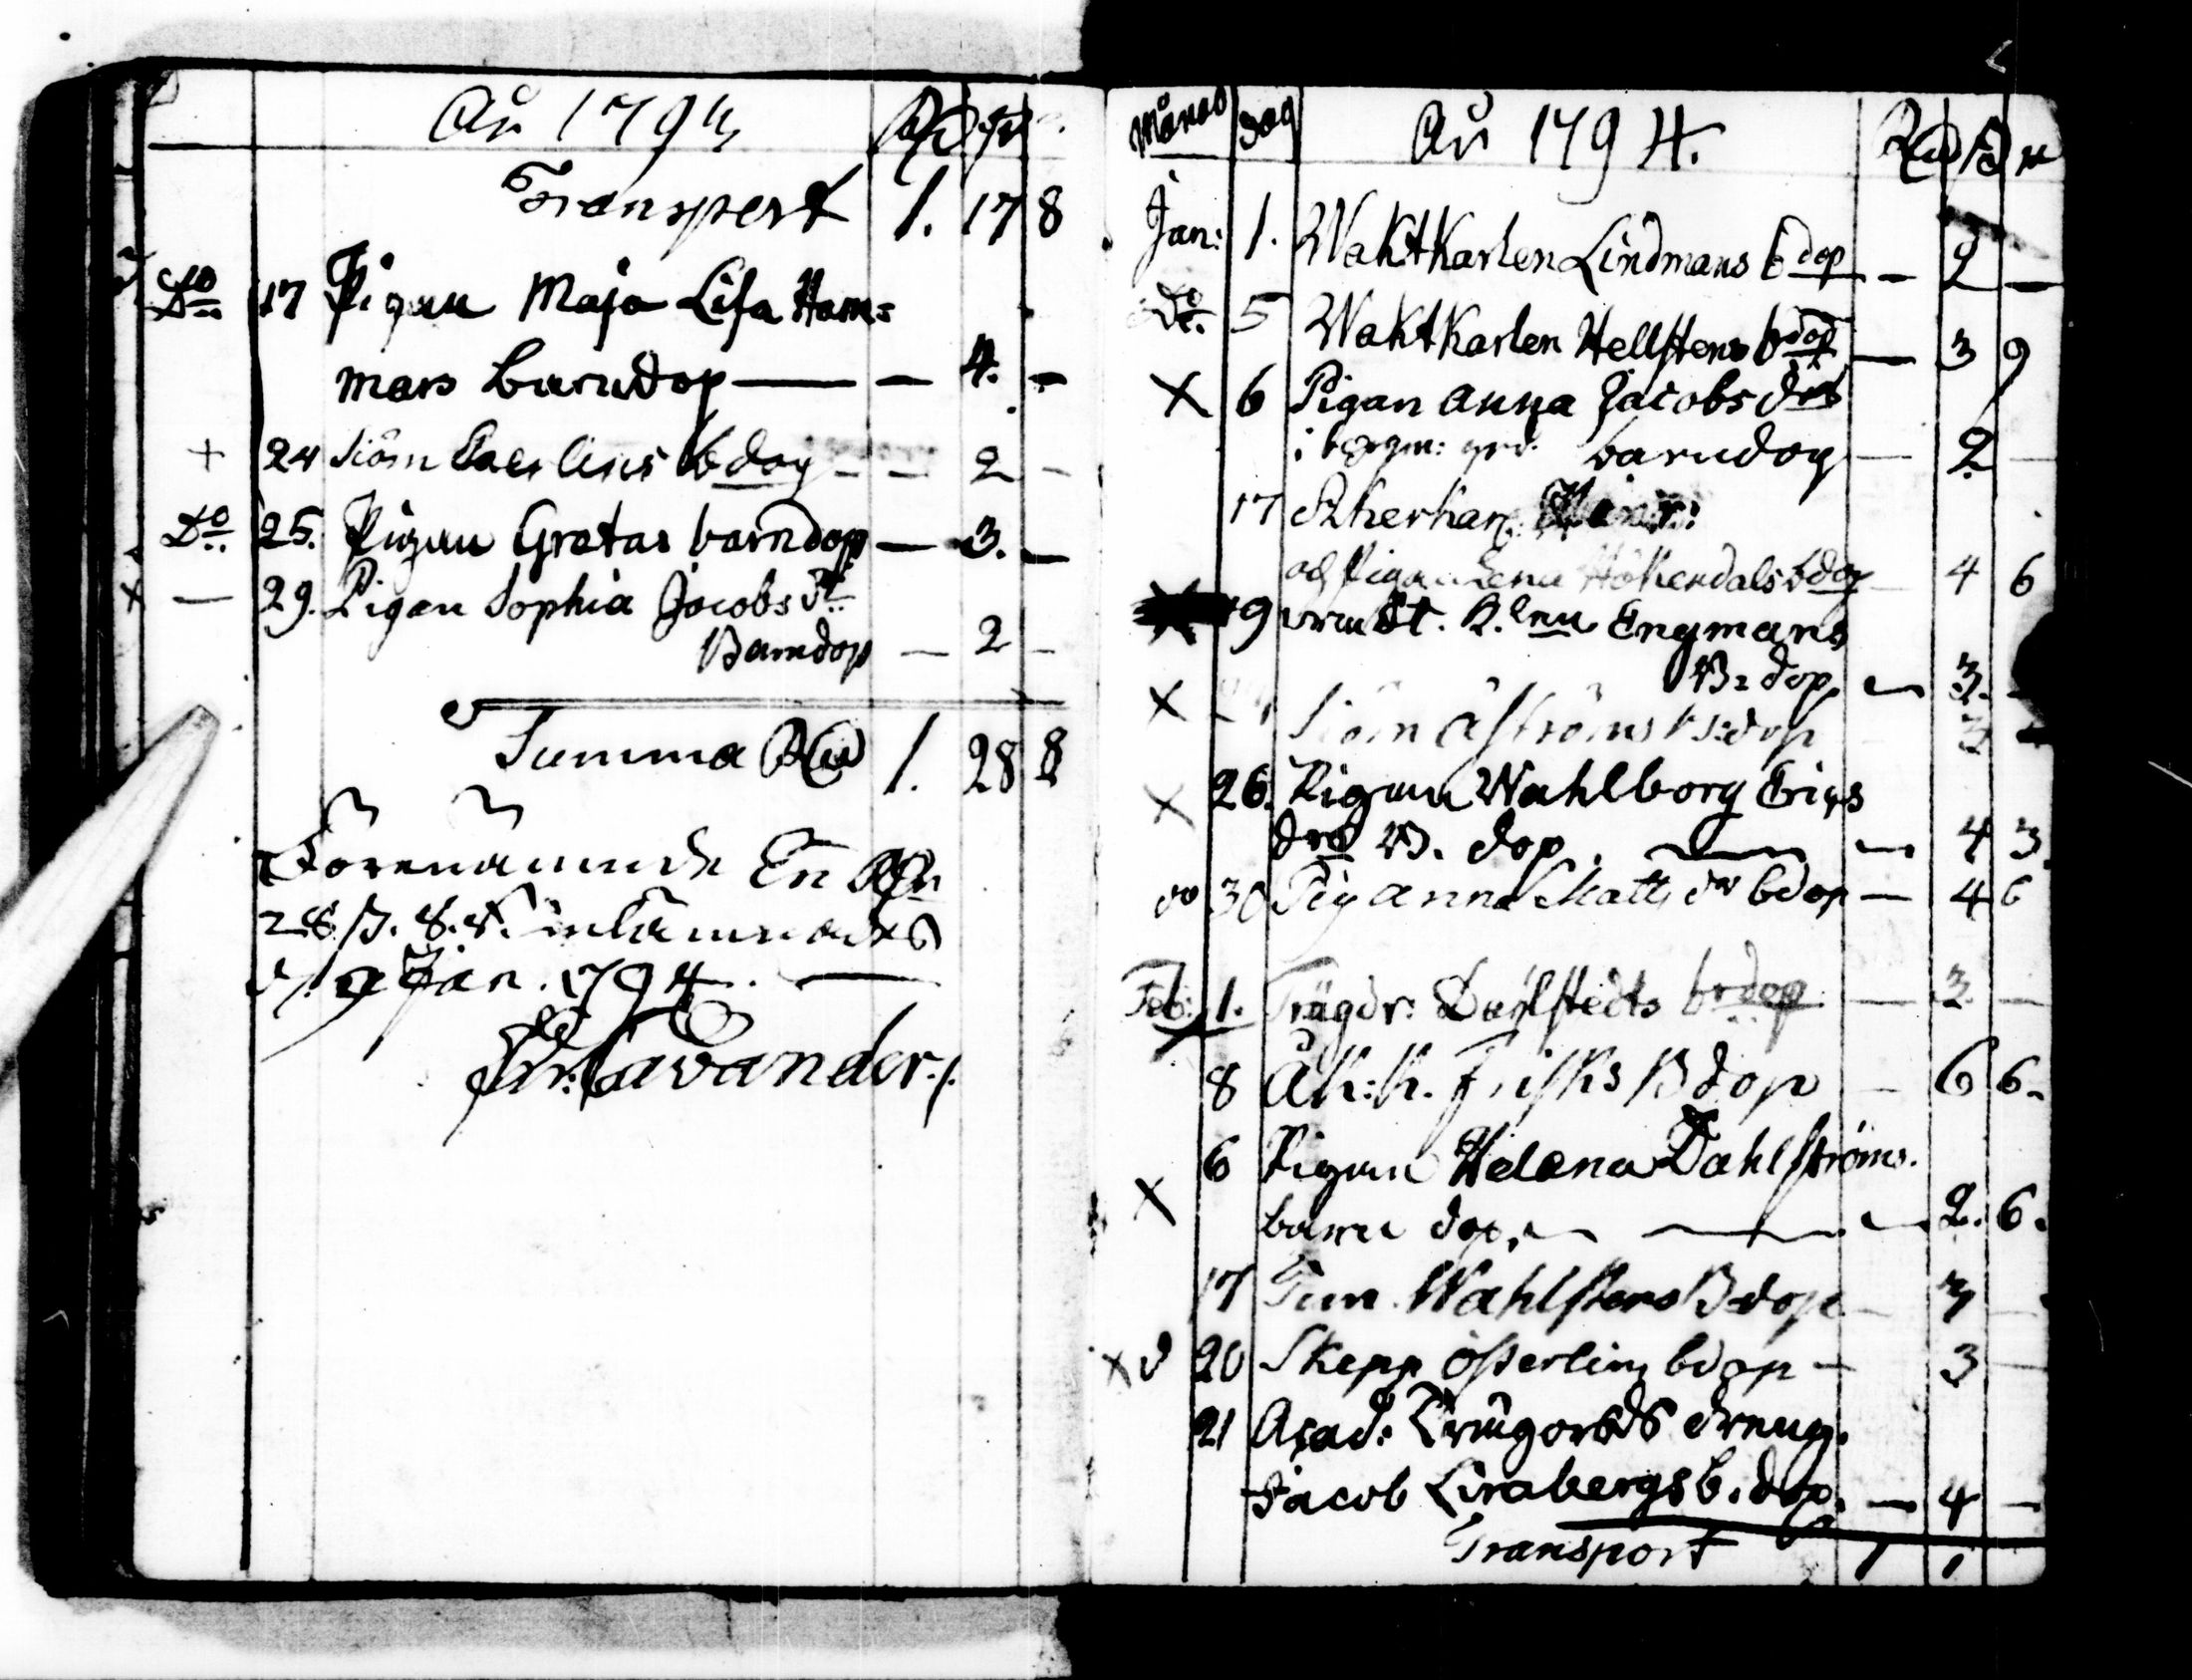 År 1794 Rd ß
Transport 1. 17 8
Do 17 Pigan Maja Lisa Ham=
mars barndop — — 4. —
+ 24 Siöm bdop — — 2 —
Do 25. Pigan Gretas barndop — 3. —
— 29. Pigan Sophia Jacobs dr
Barndop — 2 —
Summa Rd 1. 28 8
Förenämnde En Rdr
28 ß. 8. r. inlämnades
d. 9 Jan. 1794. —
Cavander.
Månad Dag År 1794. Rd ß r
Jan: 1. Waktkarlen Lindmans bdop — 2 —
Do. 5 Waktkarlen Hellstens bdop — 3 9
X 6 Pigan Anna Jacobs drs
barndop — 2 —
17
och Pigan Lena Hökendals bdop — 4 6
19 Engmans
B: dop. — 3. —
X Siöm Åströms B:dop 3 —
X 26. Pigan Wahlborg Erics
drs B. dop. — — 4 3.
do 30 Pig Anna Matts dr bdop — 4 6
Feb: 1. Trägdr: Dahlstedts bdop — 3 —
8 Åk:k. Frisks Bdop — 6 6.
6 Pigan Helena Dahlströms.
X barn dop. — — 2. 6.
17 Tim. Wahlstens Bdop — 3 —
X d 20 Skepp Österlins bdop — 3 —
21 Acad: dreng.
Jacob Lindbergs b. dop. — 4 —
Transport 1 1